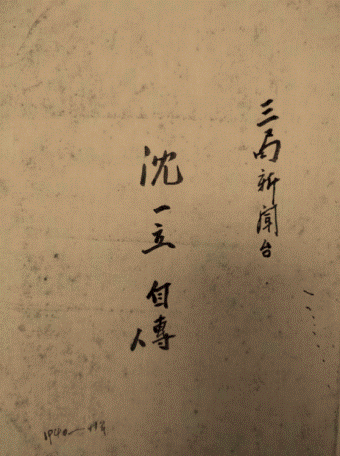 三局新聞台
沈一立 自傳